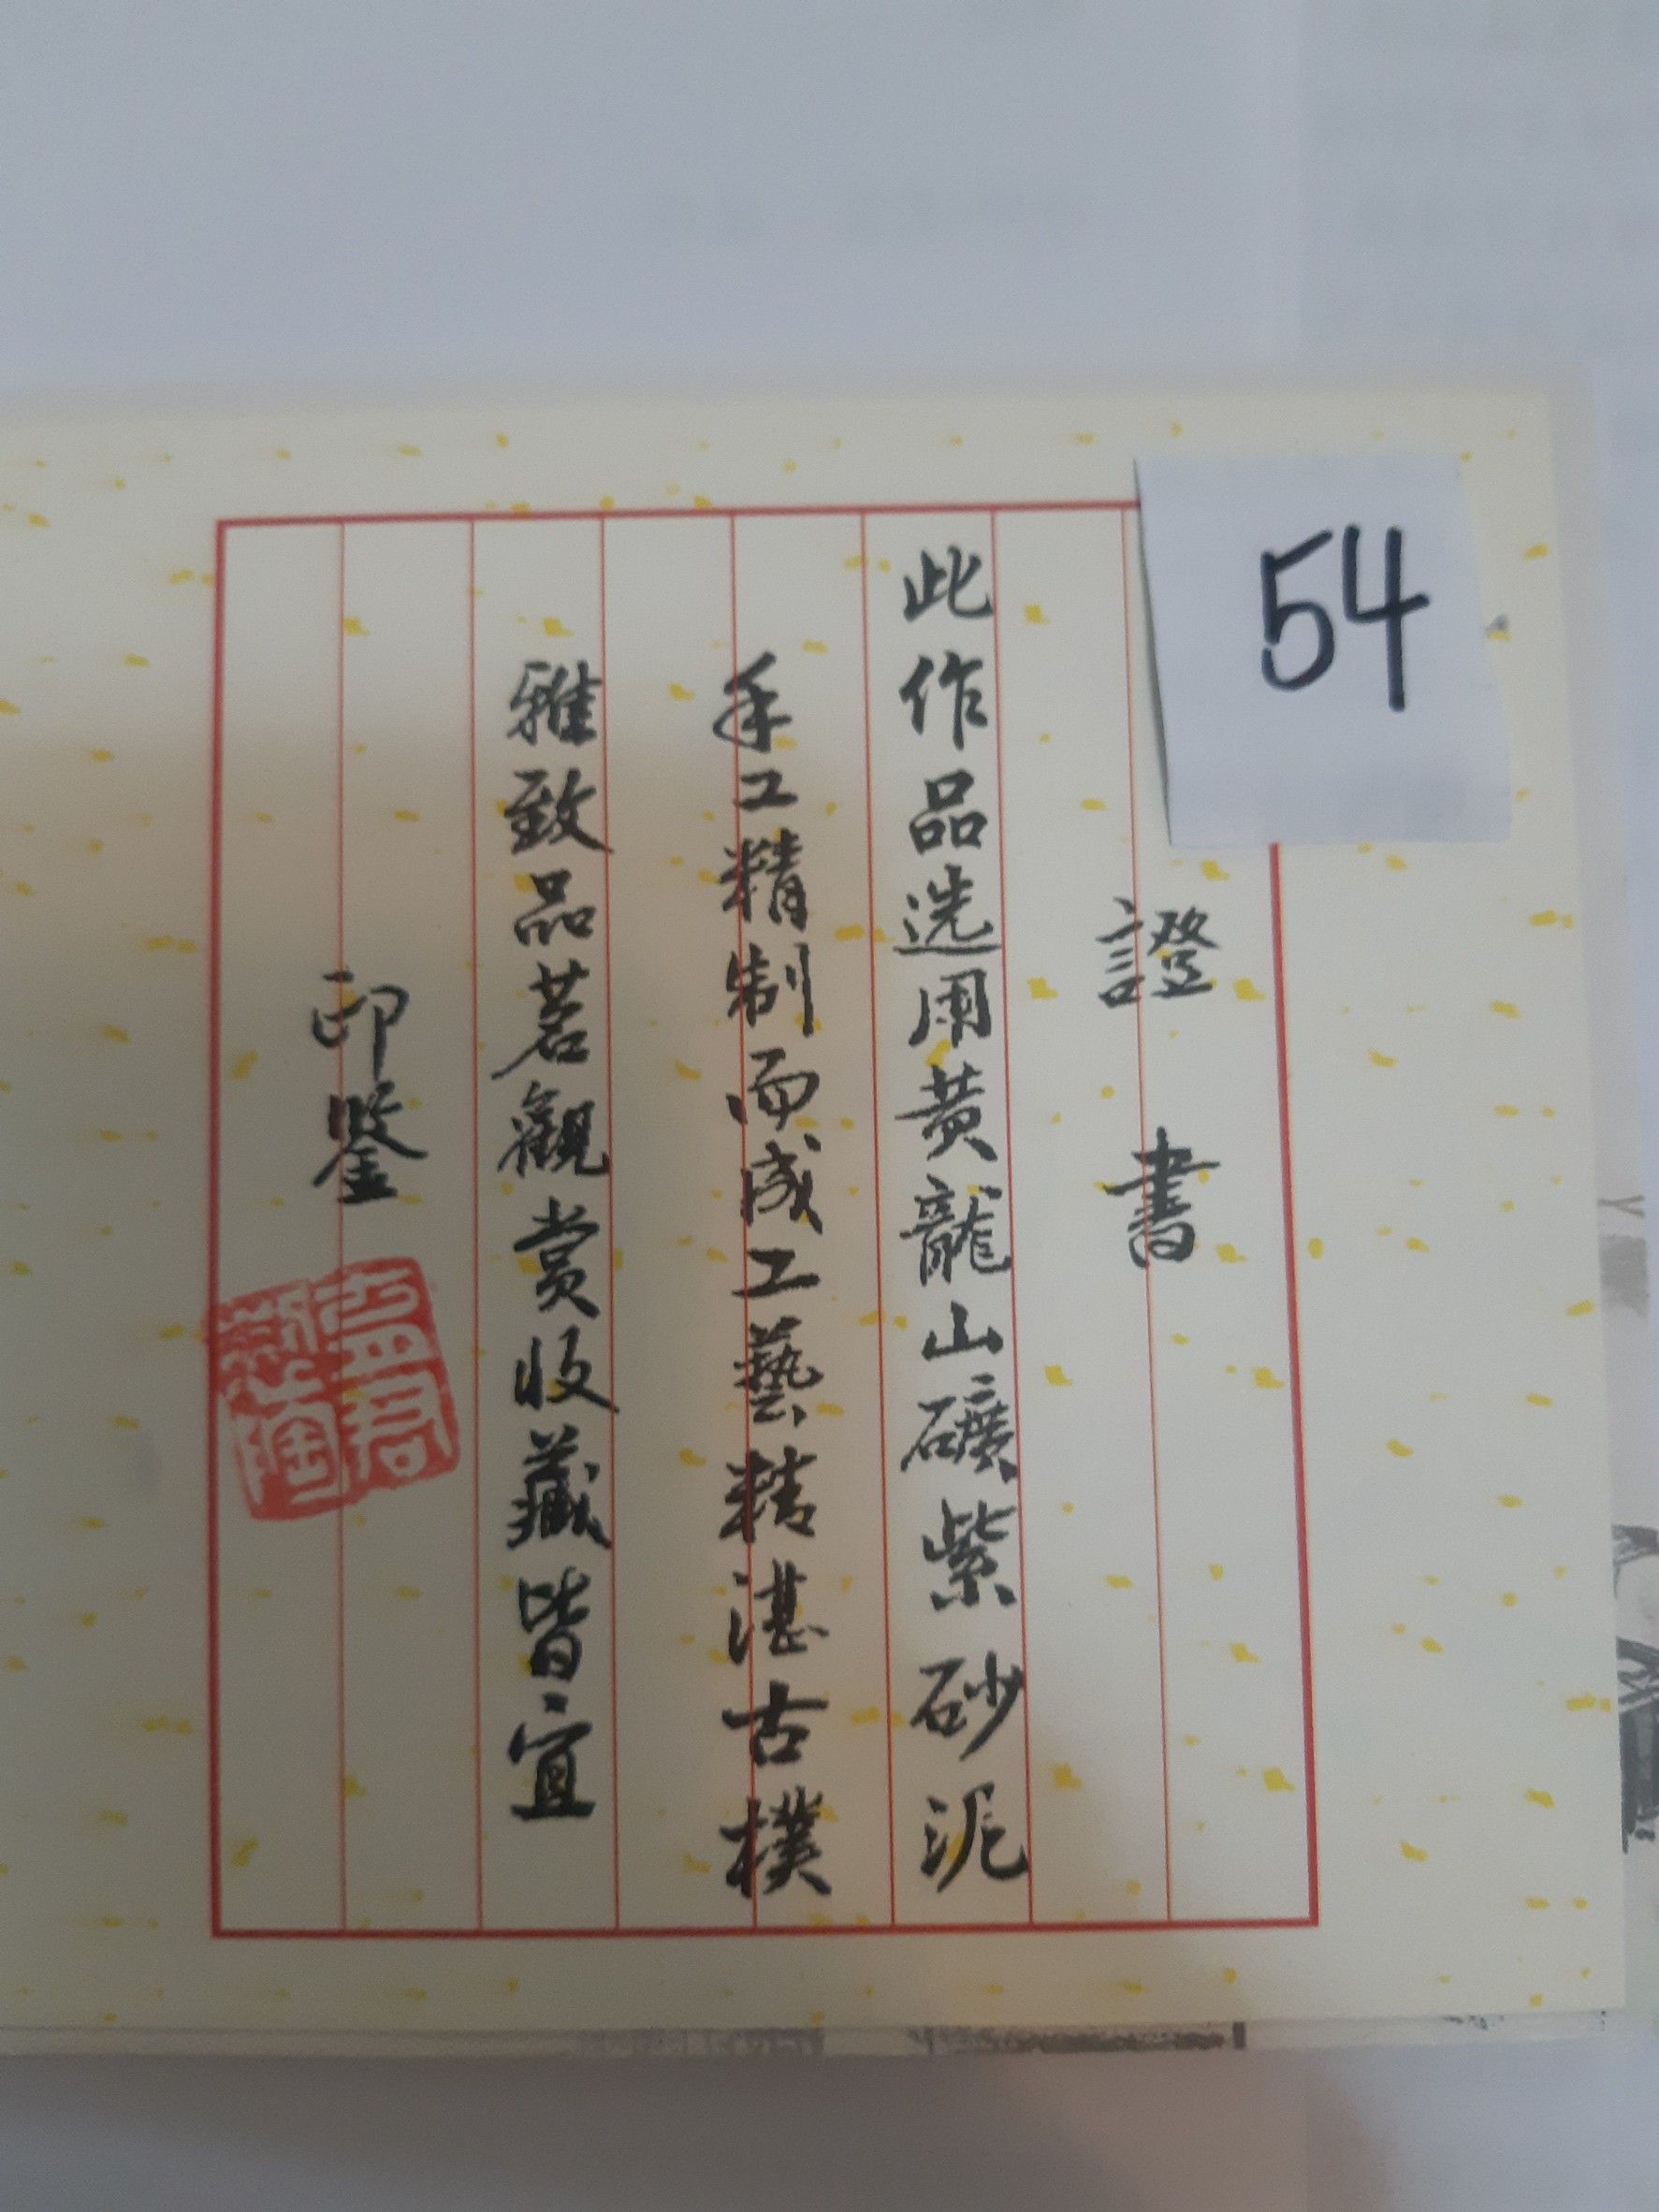 54
證書
此作品选用黄龍山礦紫砂泥
手工精制而成工藝精湛古樸
雅致品茗觀赏收藏皆宜
印鑒